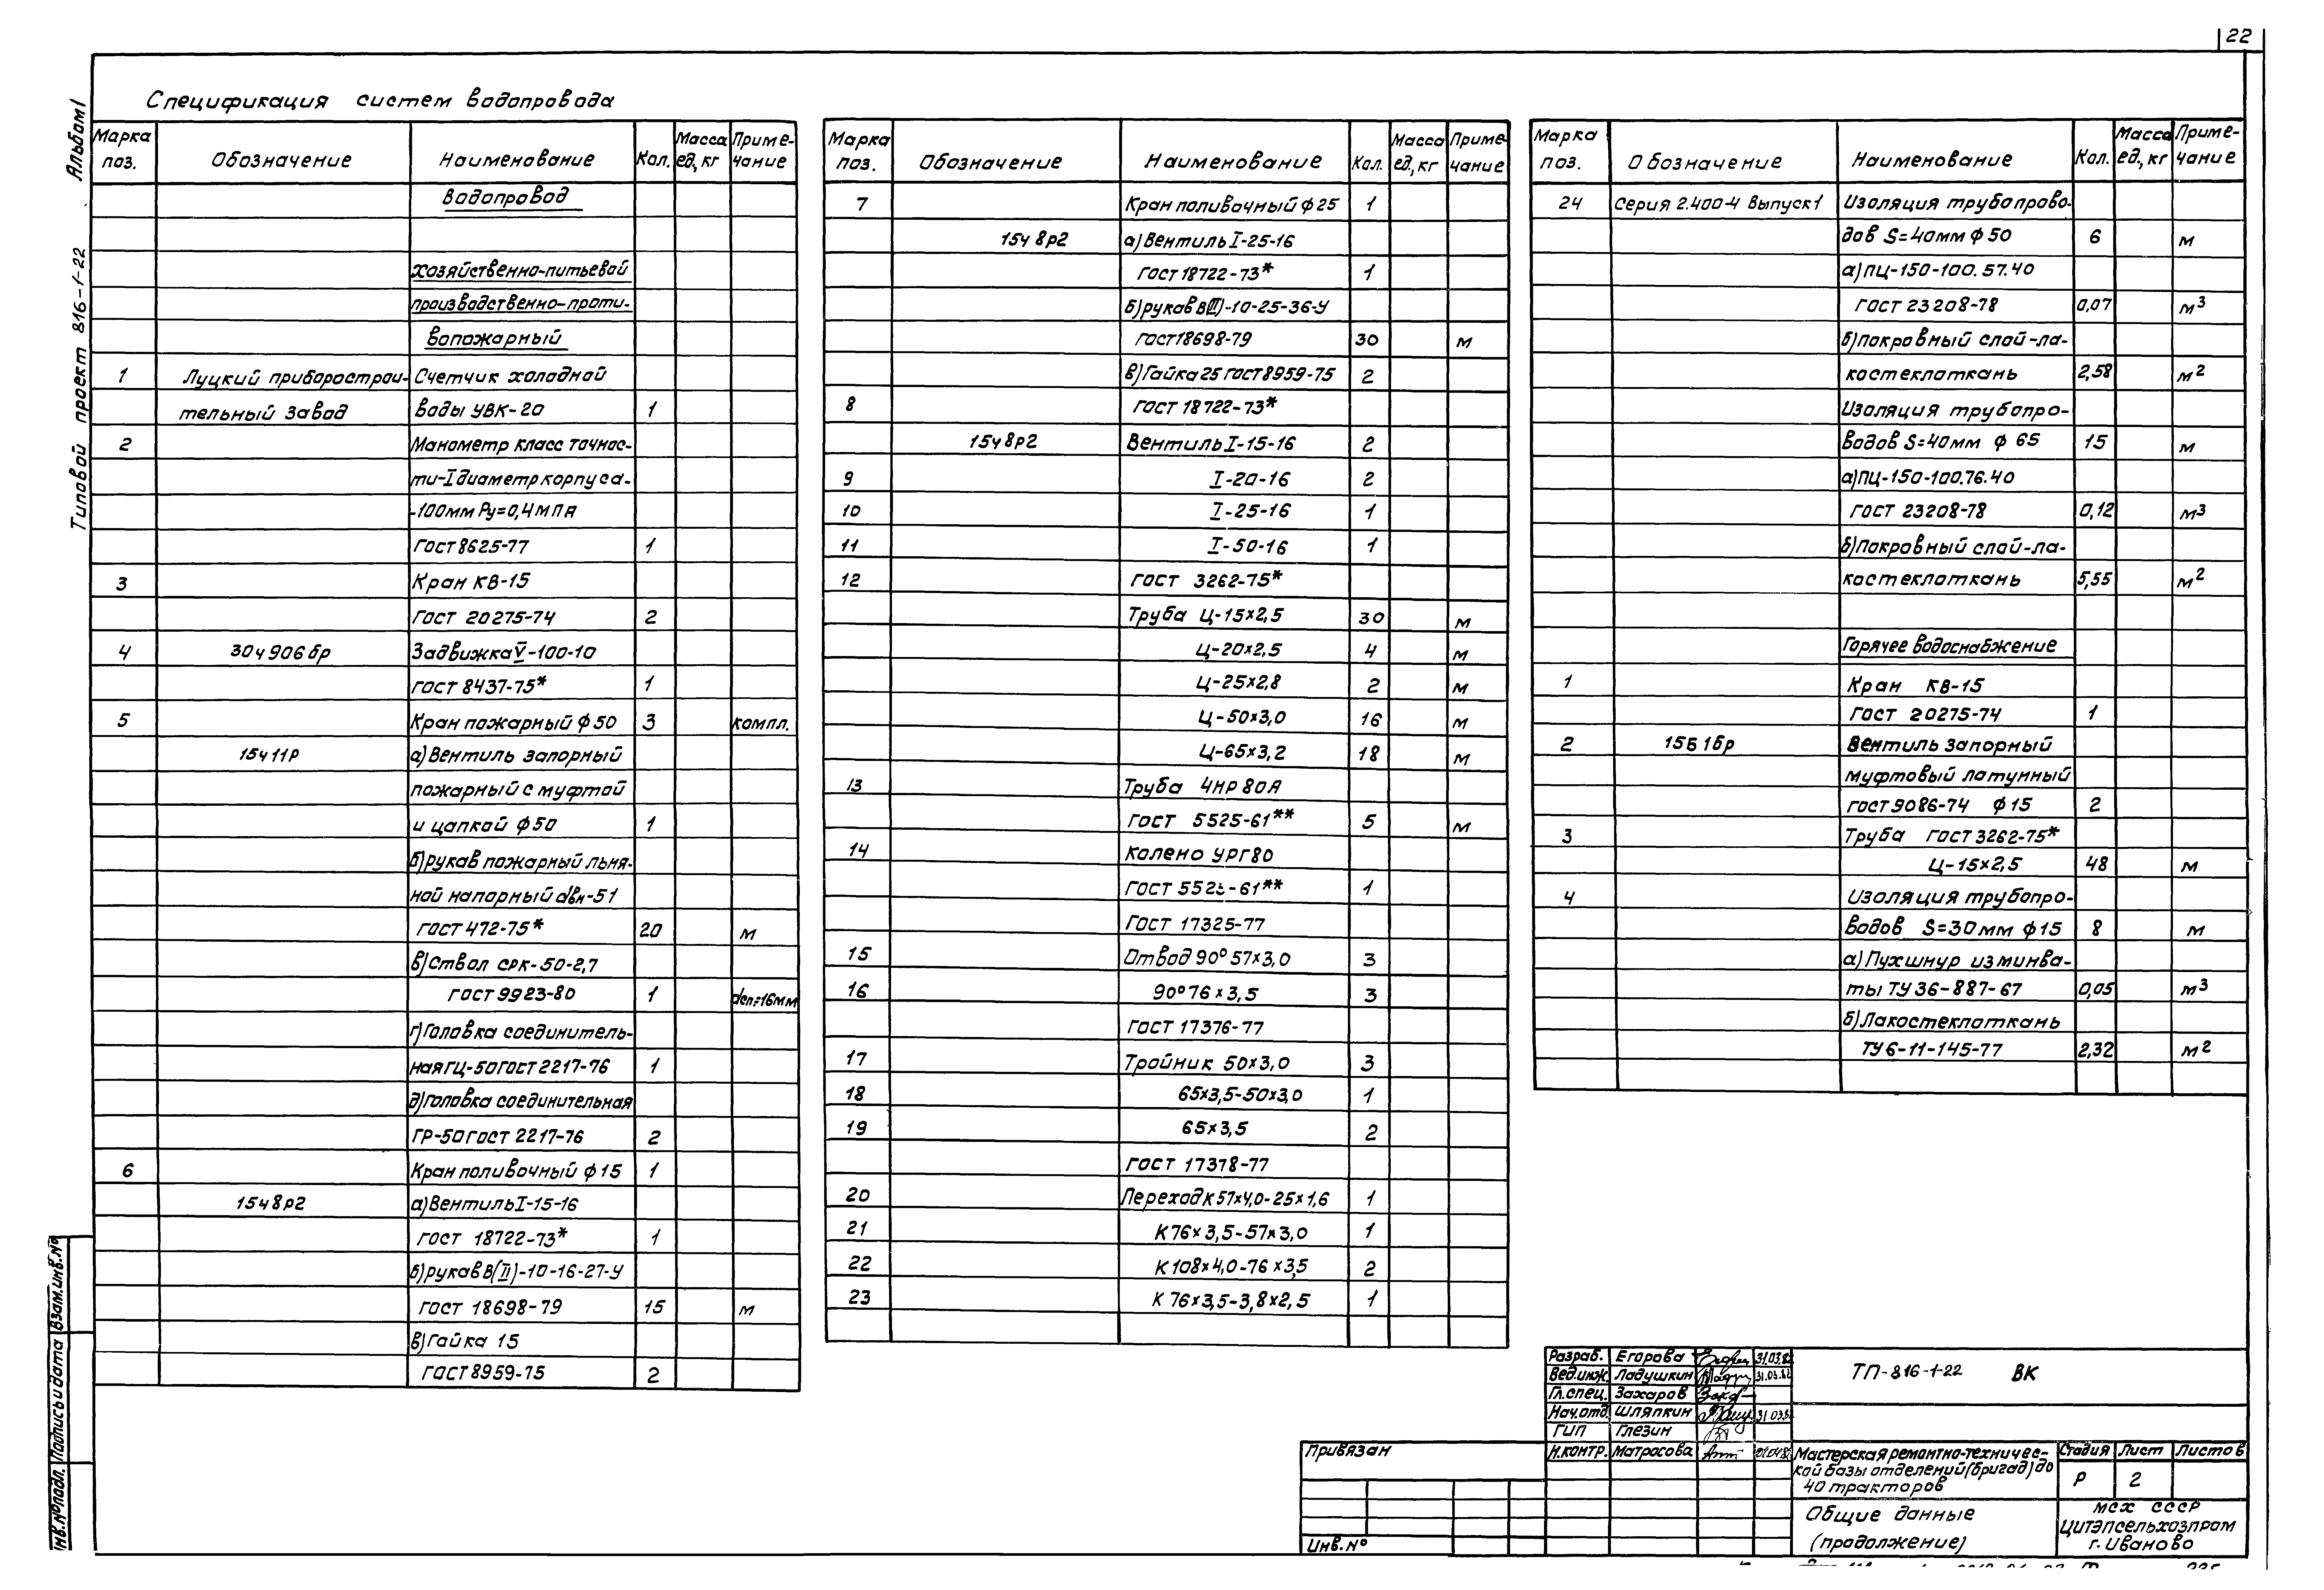 22
Альбом I
Типовой проект 816-1-22
Спецификация систем водопровода
Марка поз. Обозначение Наименование Кол. Масса ед,кг Приме-чание
Водопровод
хозяйственно-питьевой
производственно-проти-
вопожарный
1 Луцкий приборострои- Счетчик холодной
тельный завод воды УВК-20 1
2 Манометр класс точнос-
ти-I диаметр корпуса-
-100мм Ру=0,4МПА
ГОСТ 8625-77 1
3 Кран КВ-15
ГОСТ 20275-74 2
4 30ч906бр Задвижка V-100-10
ГОСТ 8437-75* 1
5 Кран пожарный ф50 3 компл.
15ч11Р а)Вентиль запорный
пожарный с муфтой
и цапкой ф50 1
б)рукав пожарный льня-
ной напорный dвн-51
ГОСТ 472-75* 20 м
в)Ствол СРК-50-2,7
ГОСТ 9923-80 1 dсп=16мм
г)Головка соединитель-
ная ГЦ-50 ГОСТ 2217-76 1
д)Головка соединительная
ГР-50 ГОСТ 2217-76 2
6 Кран поливочный ф15 1
15ч8р2 а)Вентиль I-15-16
ГОСТ 18722-73* 1
б)рукав В(II)-10-16-27-У
ГОСТ 18698-79 15 м
в)Гайка 15
ГОСТ 8959-75 2
Марка поз. Обозначение Наименование Кол. Масса ед,кг Приме-чание
7 Кран поливочный ф25 1
15ч8р2 а)Вентиль I-25-16
ГОСТ 18722-73* 1
б)рукав В(II)-10-25-36-У
ГОСТ 18698-79 30 м
в)Гайка 25 ГОСТ 8959-75 2
8 ГОСТ 18722-73*
15ч8р2 Вентиль I-15-16 2
9 I-20-16 2
10 I-25-16 1
11 I-50-16 1
12 ГОСТ 3262-75*
Труба Ц-15×2,5 30 м
Ц-20×2,5 4 м
Ц-25×2,8 2 м
Ц-50×3,0 16 м
Ц-65×3,2 18 м
13 Труба ЧНР 80А
ГОСТ 5525-61** 5 м
14 Колено УРГ80
ГОСТ 5525-61** 1
ГОСТ 17325-77
15 Отвод 90° 57×3,0 3
16 90° 76×3,5 3
ГОСТ 17376-77
17 Тройник 50×3,0 3
18 65×3,5-50×3,0 1
19 65×3,5 2
ГОСТ 17378-77
20 Переход К57×4,0-25×1,6 1
21 К76×3,5-57×3,0 1
22 К108×4,0-76×3,5 2
23 К 76×3,5-3,8×2,5 1
Марка поз. Обозначение Наименование Кол. Масса ед,кг Приме-чание
24 Серия 2.400-4 Выпуск 1 Изоляция трубопрово-
дов S=40мм ф50 6 м
а)ПЦ-150-100.57.40
ГОСТ 23208-78 0,07 м3
б)покровный слой-ла-
костеклоткань 2,58 м2
Изоляция трубопро-
водов S=40мм ф 65 15 м
а)ПЦ-150-100.76.40
ГОСТ 23208-78 0,12 м3
б)Покровный слой-ла-
костеклоткань 5,55 м2
Горячее водоснабжение
1 Кран КВ-15
ГОСТ 20275-74 1
2 15Б1бр Вентиль запорный
муфтовый латунный
ГОСТ 9086-74 ф15 2
3 Труба ГОСТ 3262-75*
Ц-15×2,5 48 м
4 Изоляция трубопро-
водов S=30мм ф15 8 м
а)Пухшнур из минва-
ты ТУ 36-887-67 0,05 м3
б)Лакостеклоткань
ТУ6-11-145-77 2,32 м2
Разраб. Егорова 31.03.82
Вед.инж. Ладушкин 31.03.82
Гл.спец. Захаров
Нач.отд. Шляпкин 31.03.82
ГИП Глезин
Н.контр. Матросова
ТП-816-1-22 ВК
Мастерская ремонтно-техничес-
кой базы отделений(бригад)до
40 тракторов
Стадия Лист Листов
Р 2
Общие данные
(продолжение)
МСХ СССР
ЦИТЭПсельхозпром
г.Иваново
Привязан
Инв.№
Инв.№подл. Подпись и дата Взам.инв.№